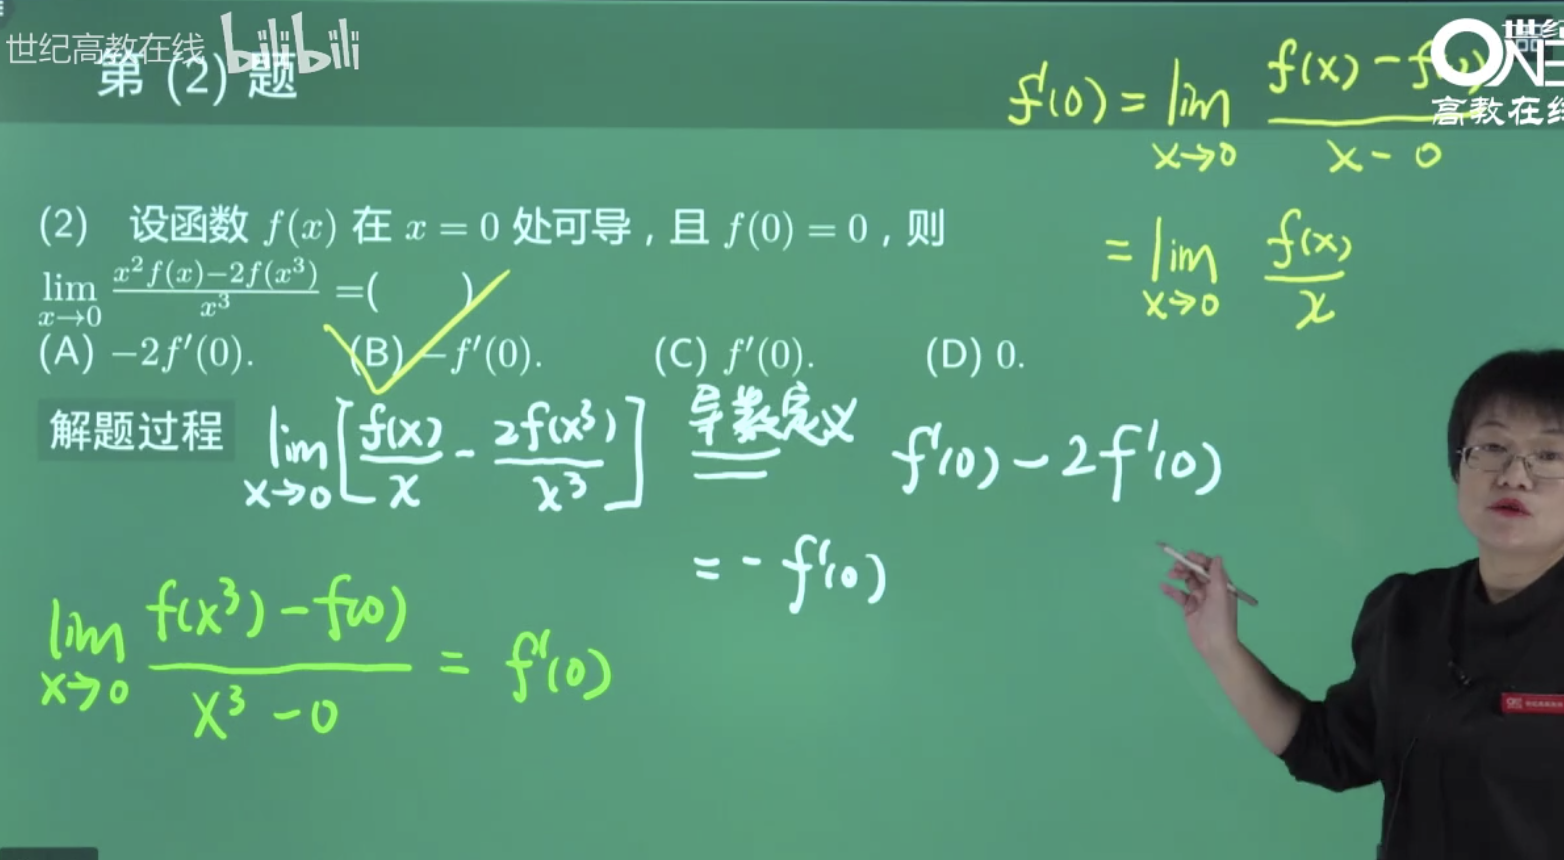 世纪高教在线 bilibili
第 (2) 题
f'(0) = lim x→0 f(x) - f( ) / x - 0
= lim x→0 f(x) / x
高教在线
(2) 设函数 f(x) 在 x = 0 处可导，且 f(0) = 0，则
lim x→0 x²f(x)−2f(x³) / x³ =( )
(A) −2f′(0). (B) −f′(0). (C) f′(0). (D) 0.
解题过程 lim x→0 [f(x)/x - 2f(x³)/x³] 导数定义 = f'(0) - 2f'(0)
= - f'(0)
lim x→0 f(x³) - f(0) / x³ - 0 = f'(0)